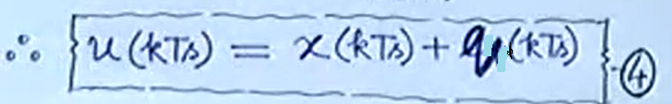 ∴ u(kTs) = x(kTs) + q(kTs) ④